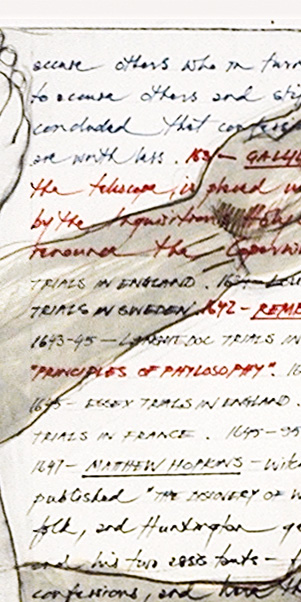 accuse others who in turn
to accuse others and sti
concluded that confess
are worth less. 163 — GALILE
the telescope, is placed u
by the Inquisition's Holy
renounce the Copernic
TRIALS IN ENGLAND.
TRIALS IN SWEDEN. 1642 – REMB
1643-45 – LANGUEDOC TRIALS IN
"PRINCIPLES OF PHYLOSOPHY". 16
1645 – ESSEX TRIALS IN ENGLAND.
TRIALS IN FRANCE. 1645-
1647 – MATHEW HOPKINS – Witc
published "THE DISCOVERY OF W
folk, and Huntington
and his two assistants –
confessions, and have